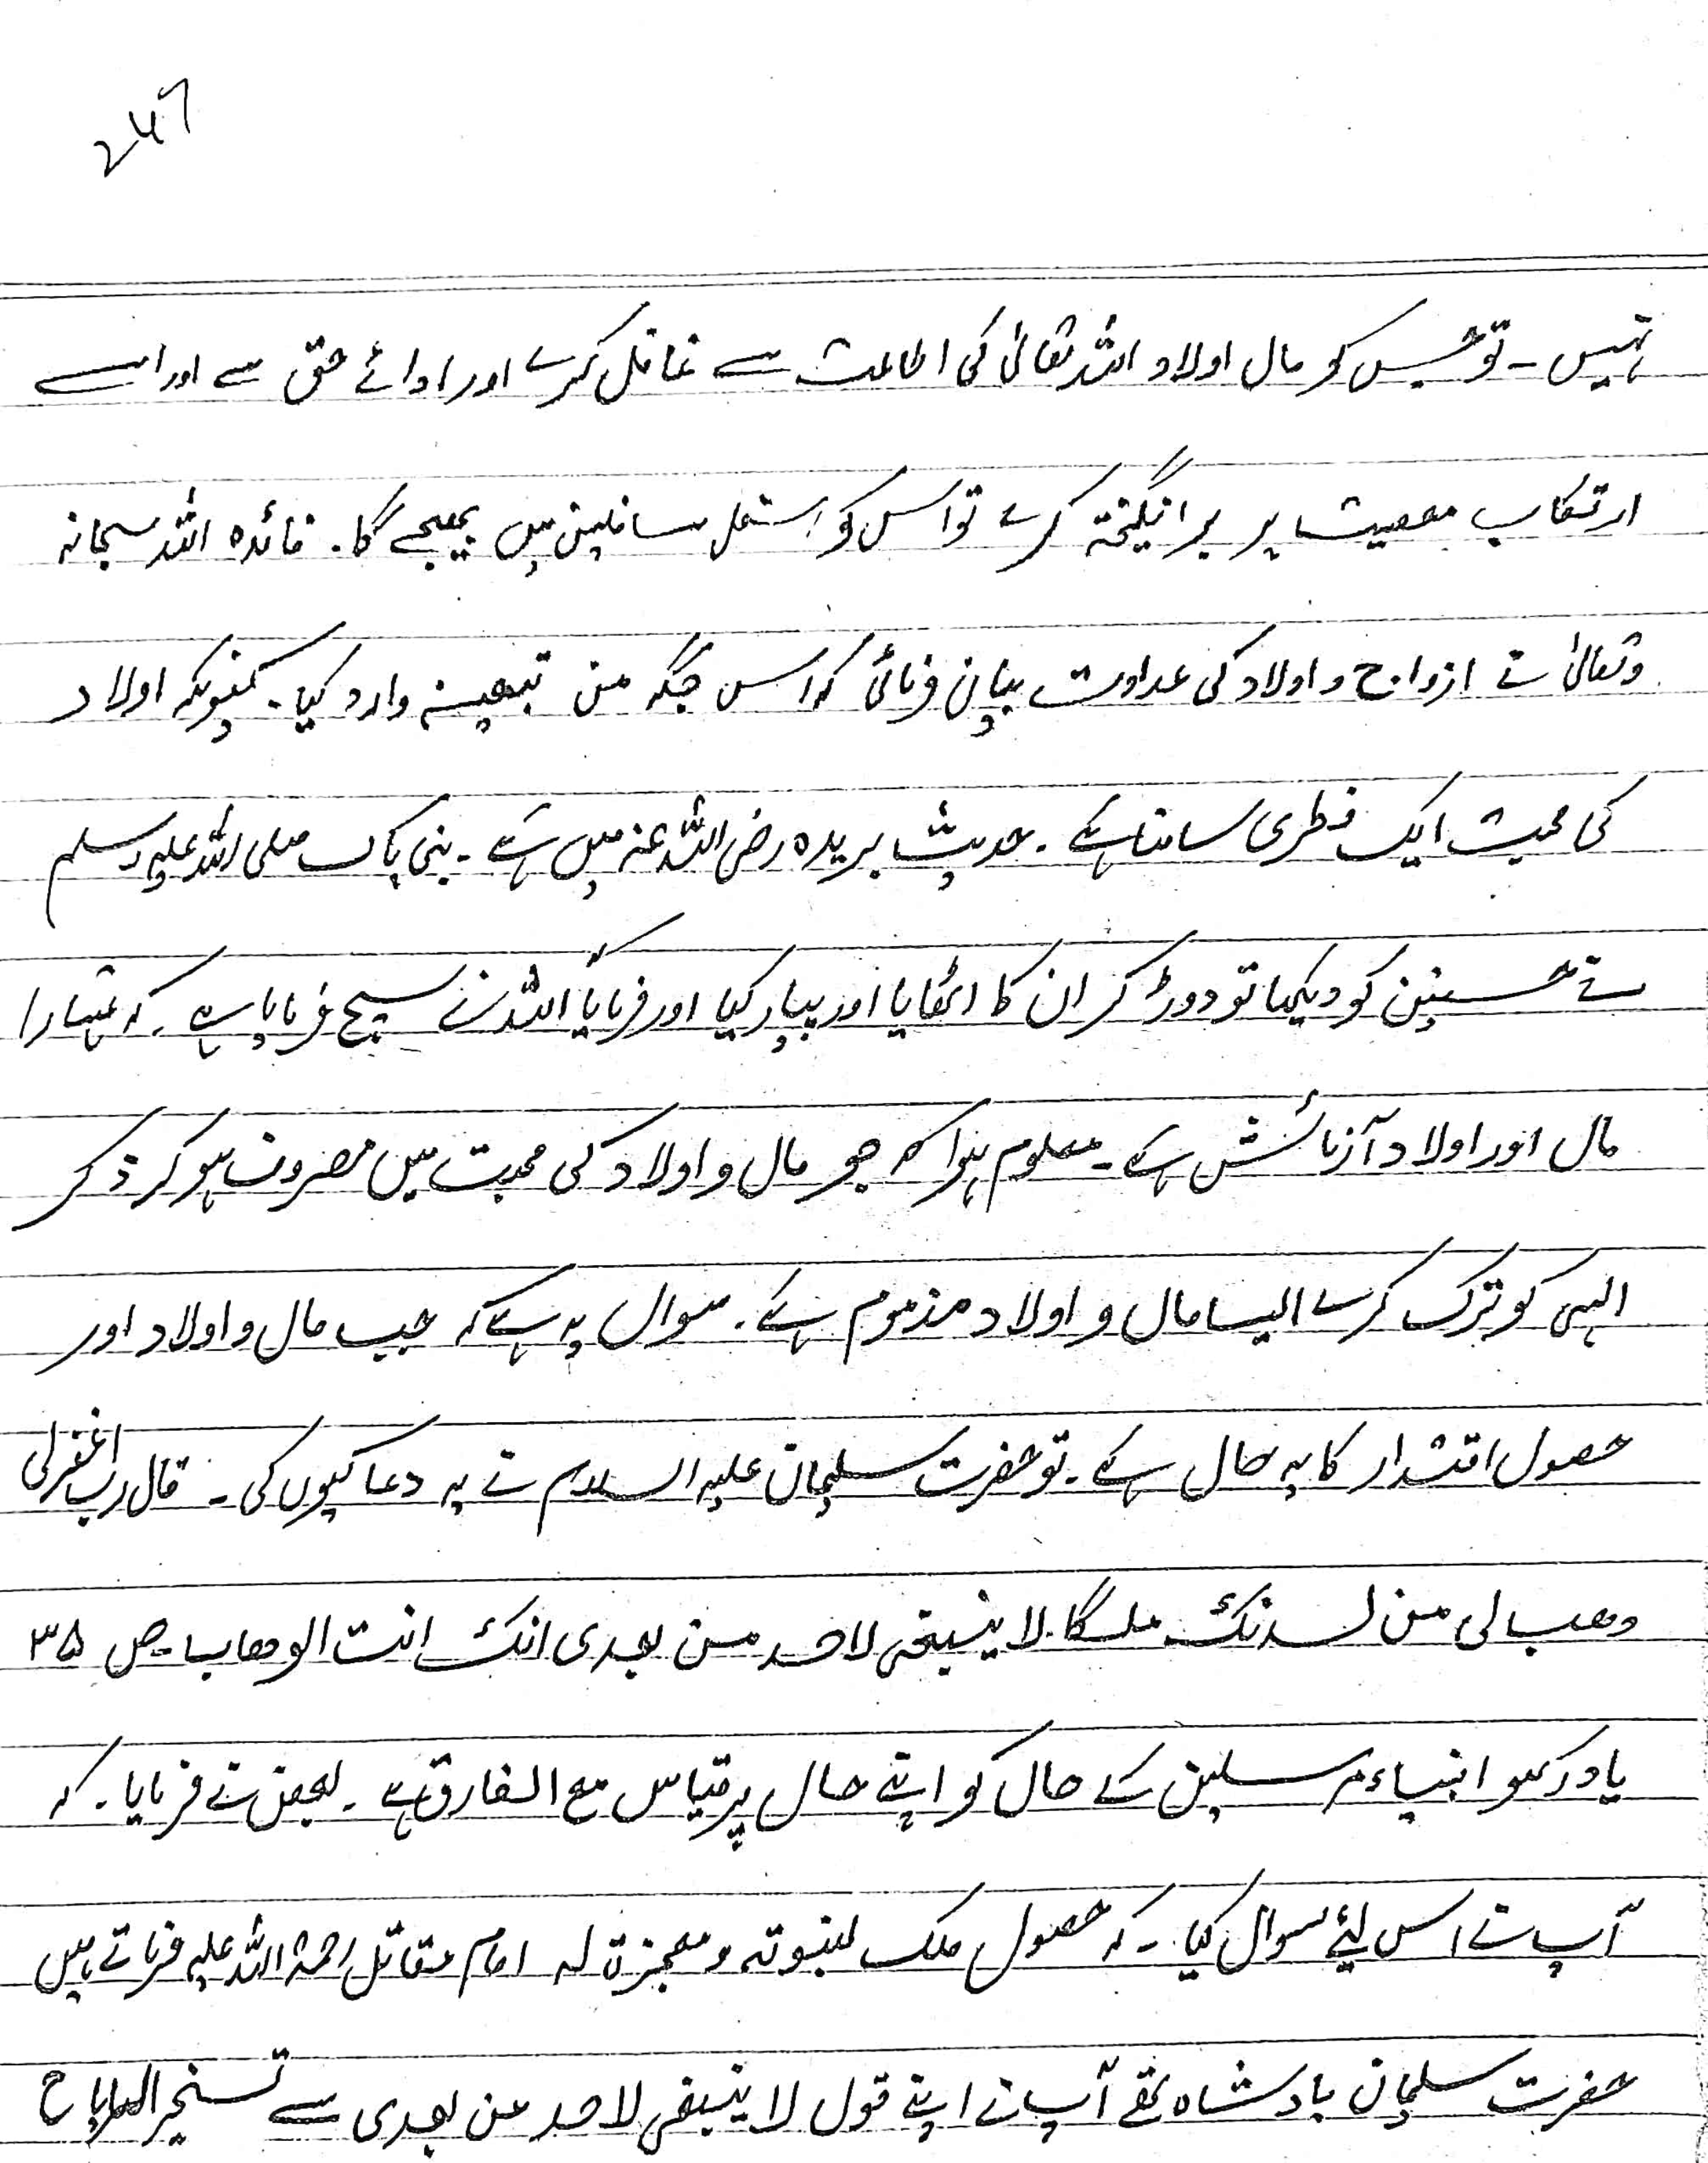 247
نہیں ۔ تو جس کو مال اولاد اللہ تعالیٰ کی اطاعت سے غافل کرے اور ادائے حق سے اور اسے
ارتکاب معصیت پر برانگیختہ کرے تو اس کو اسفل سافلین میں بھیجے گا۔ فائدہ اللہ سبحانہ
وتعالیٰ نے ازواج و اولاد کی عداوت بیان فرمائی کہ اس جگہ من تبعیضیہ وارد کیا۔ کیونکہ اولاد
کی محبت ایک فطری سا تھا ہے ۔ حدیث بریدہ رضی اللہ عنہ میں ہے ۔ نبی پاک صلی اللہ علیہ وسلم
نے حسنین کو دیکھا تو دوڑ کر ان کا اٹھایا اور پیار کیا اور فرمایا اللہ نے سچ فرمایا ہے ۔ کہ تمہارا
مال اور اولاد آزمائش ہے ۔ معلوم ہوا کہ جو مال و اولاد کی محبت میں مصروف ہو کر ذکر
الہی کو ترک کرے ایسا مال و اولاد مذموم ہے ۔ سوال یہ ہے کہ جب مال و اولاد اور
حصول اقتدار کا یہ حال ہے ۔ تو حضرت سلیمان علیہ السلام نے یہ دعا کیوں کی ۔ قال رب اغفرلی
وھب لی من لدنک ملکا لا ینبغی لاحد من بعدی انک انت الوھاب ۔ ص ۳۵
یاد رکھو انبیاء مرسلین کے حال کو اپنے حال پر قیاس مع الفارق ہے ۔ بعض نے فرمایا ۔ کہ
آپ نے اس لیئے سوال کیا ۔ کہ حصول ملک لنبوتہ و معجزۃ لہ امام مقاتل رحمۃ اللہ علیہ فرماتے ہیں
حضرت سلیمان بادشاہ تھے آپ نے اپنے قول لا ینبغی لاحد من بعدی سے تسخیر الریاح